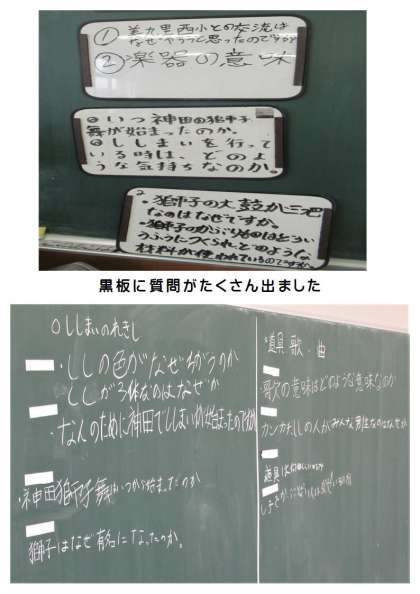 ① 美九里西小との交流は
なぜやろうと思ったのですか
② 楽器の意味
◎いつ神田の獅子
舞が始まったのか。
◎ししまいを行って
いる時は、どのよ
うな気持ちなのか。
・獅子の太鼓が三把
なのはなぜですか。
・獅子のかぶりものはどうい
うふうにつくられ、どのような
材料が使われているのですか。
黒板に質問がたくさん出ました
○ししまいのれきし
・ししの色がなぜちがうのか
ししが3体なのはなぜか
・なんのために神田でししまいが始まったのですか
・神田獅子舞はいつから始まったのか
獅子はなぜ有名になったのか。
道具 歌・曲
歌の意味はどのような意味なのか
カンカチの人がみんな男性なのはなぜか
道具は